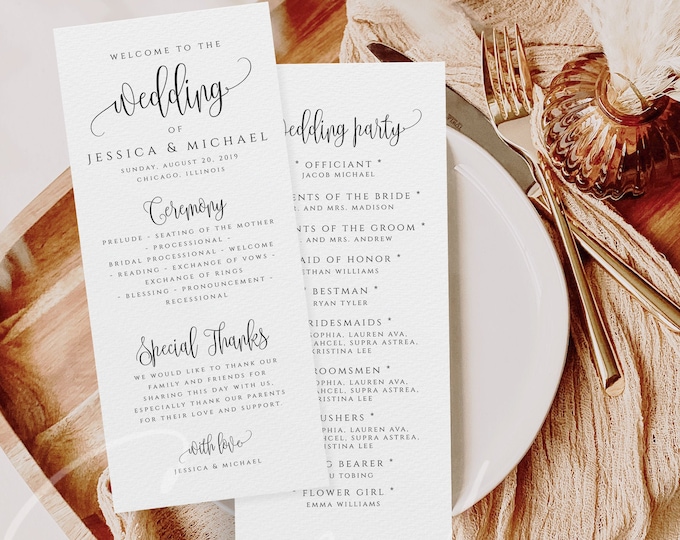 WELCOME TO THE
wedding
OF
JESSICA & MICHAEL
SUNDAY, AUGUST 20, 2019
CHICAGO, ILLINOIS
Ceremony
PRELUDE - SEATING OF THE MOTHER
- PROCESSIONAL -
BRIDAL PROCESSIONAL - WELCOME
- READING - EXCHANGE OF VOWS -
EXCHANGE OF RINGS
- BLESSING - PRONOUNCEMENT -
RECESSIONAL
Special Thanks
WE WOULD LIKE TO THANK OUR
FAMILY AND FRIENDS FOR
SHARING THIS DAY WITH US,
ESPECIALLY THANK OUR PARENTS
FOR THEIR LOVE AND SUPPORT.
with love
JESSICA & MICHAEL
party
* OFFICIANT *
JACOB MICHAEL
OF THE BRIDE *
AND MRS. MADISON
OF THE GROOM *
AND MRS. ANDREW
OF HONOR *
WILLIAMS
BESTMAN *
RYAN TYLER
LAUREN AVA,
SUPRA ASTREA,
LEE
LAUREN AVA,
SUPRA ASTREA,
LEE
USHERS *
LAUREN AVA,
SUPRA ASTREA,
LEE
BEARER *
TOBING
FLOWER GIRL *
EMMA WILLIAMS